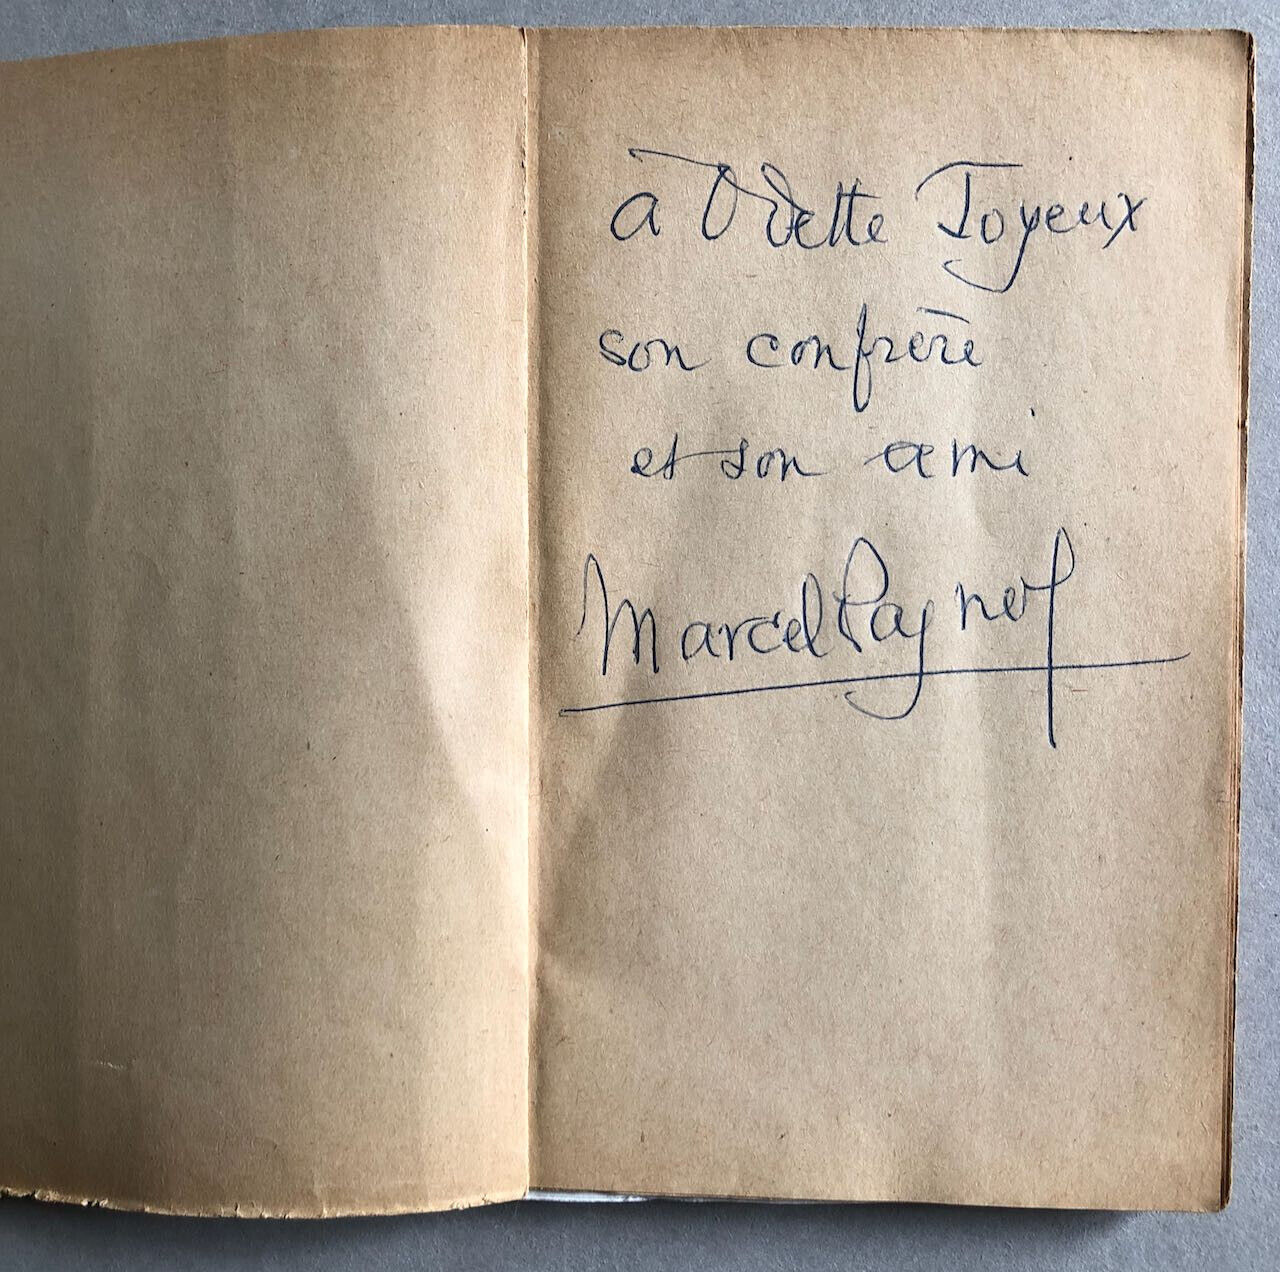 à Odette Joyeux
son confrère
et son ami
Marcel Pagnol